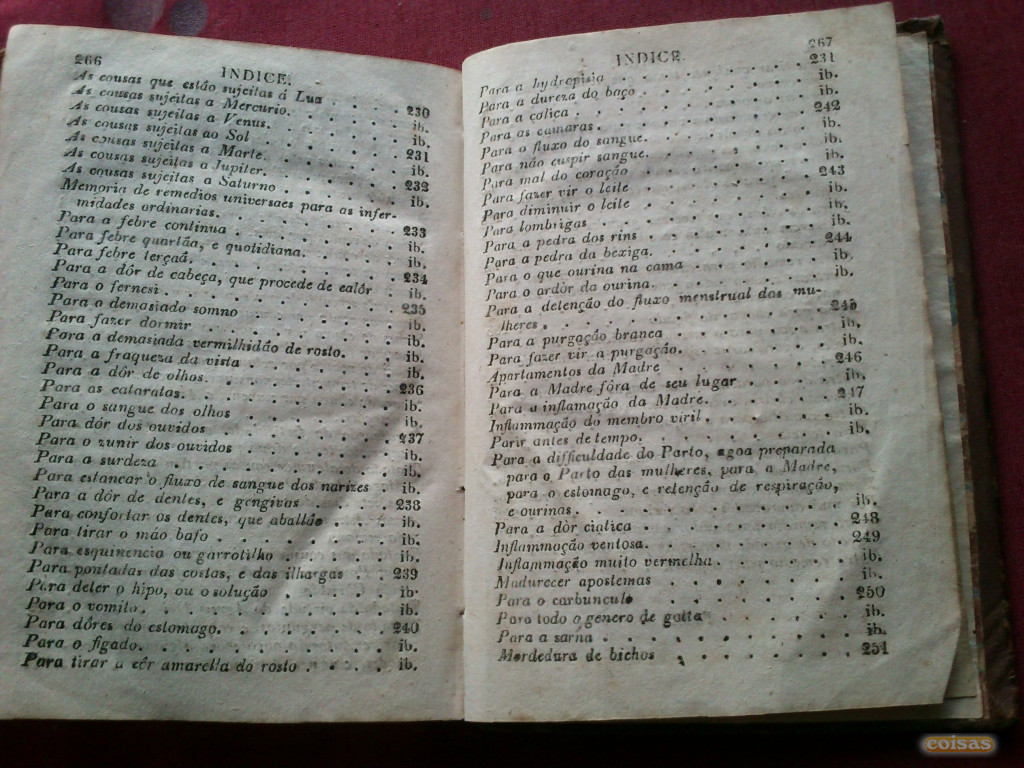 266
INDICE.
As cousas que estão sujeitas á Lua . . . . 230
As cousas sujeitas a Mercurio. . . . . . . ib.
As cousas sujeitas a Venus. . . . . . . . ib.
As cousas sujeitas ao Sol . . . . . . . . 231
As cousas sujeitas a Marte. . . . . . . . ib.
As cousas sujeitas a Jupiter. . . . . . . 232
As cousas sujeitas a Saturno . . . . . . . ib.
Memoria de remedios universaes para as infer-
midades ordinarias. . . . . . . . . . 233
Para a febre continua . . . . . . . . . ib.
Para febre quartãa, e quotidiana. . . . . . ib.
Para febre terçaã. . . . . . . . . . . 234
Para a dôr de cabeça, que procede de calôr . ib.
Para o fernesi. . . . . . . . . . . . 235
Para o demasiado somno . . . . . . . . ib.
Para fazer dormir . . . . . . . . . . ib.
Para a demasiada vermilhidão de rosto. . . . ib.
Para a fraqueza da vista . . . . . . . . ib.
Para a dôr de olhos. . . . . . . . . . 236
Para as cataratas. . . . . . . . . . . ib.
Para o sangue dos olhos . . . . . . . . ib.
Para dôr dos ouvidos . . . . . . . . . 237
Para o zunir dos ouvidos . . . . . . . . ib.
Para a surdeza . . . . . . . . . . . ib.
Para estancar o fluxo de sangue dos narizes . ib.
Para a dôr de dentes, e gengivas . . . . . 238
Para confortar os dentes, que aballão . . . . ib.
Para tirar o mão bafo . . . . . . . . . ib.
Para esquinencia ou garrotilho . . . . . . ib.
Para pontadas das costas, e das ilhargas . . 239
Para deter o hipo, ou o solução . . . . . . ib.
Para o vomito. . . . . . . . . . . . ib.
Para dôres do estomago. . . . . . . . . 240
Para o figado. . . . . . . . . . . . ib.
Para tirar a côr amarella do rosto . . . . . ib.
INDICE
267
Para a hydropisia . . . . . . . . . . 231
Para a dureza do baço . . . . . . . . . ib.
Para a cólica . . . . . . . . . . . . ib.
Para as camaras. . . . . . . . . . . 242
Para o fluxo do sangue. . . . . . . . . ib.
Para não cuspir sangue. . . . . . . . . ib.
Para mal do coração . . . . . . . . . ib.
Para fazer vir o leite . . . . . . . . . 243
Para diminuir o leite . . . . . . . . . ib.
Para lombrigas . . . . . . . . . . . ib.
Para a pedra dos rins . . . . . . . . . ib.
Para a pedra da bexiga. . . . . . . . . 244
Para o que ourina na cama . . . . . . . ib.
Para o ardôr da ourina. . . . . . . . . ib.
Para a detenção do fluxo menstrual das mu-
lheres . . . . . . . . . . . . . . 245
Para a purgação branca . . . . . . . . ib.
Para fazer vir a purgação. . . . . . . . ib.
Apartamentos da Madre . . . . . . . . 246
Para a Madre fóra de seu lugar . . . . . . ib.
Para a inflamação da Madre. . . . . . . 247
Inflammação do membro viril. . . . . . . ib.
Parir antes de tempo. . . . . . . . . . ib.
Para a difficuldade do Parto, agoa preparada
para o Parto das mulheres, para a Madre,
para o estomago, e retenção de respiração,
e ourinas. . . . . . . . . . . . . ib.
Para a dôr ciatica . . . . . . . . . . 248
Inflammação ventosa. . . . . . . . . . 249
Inflammação muito vermelha. . . . . . . ib.
Madurecer apostemas . . . . . . . . . ib.
Para o carbunculo . . . . . . . . . . 250
Para todo o genero de gotta . . . . . . . ib.
Para a sarna . . . . . . . . . . . . ib.
Mordedura de bichos . . . . . . . . . 251
coisas